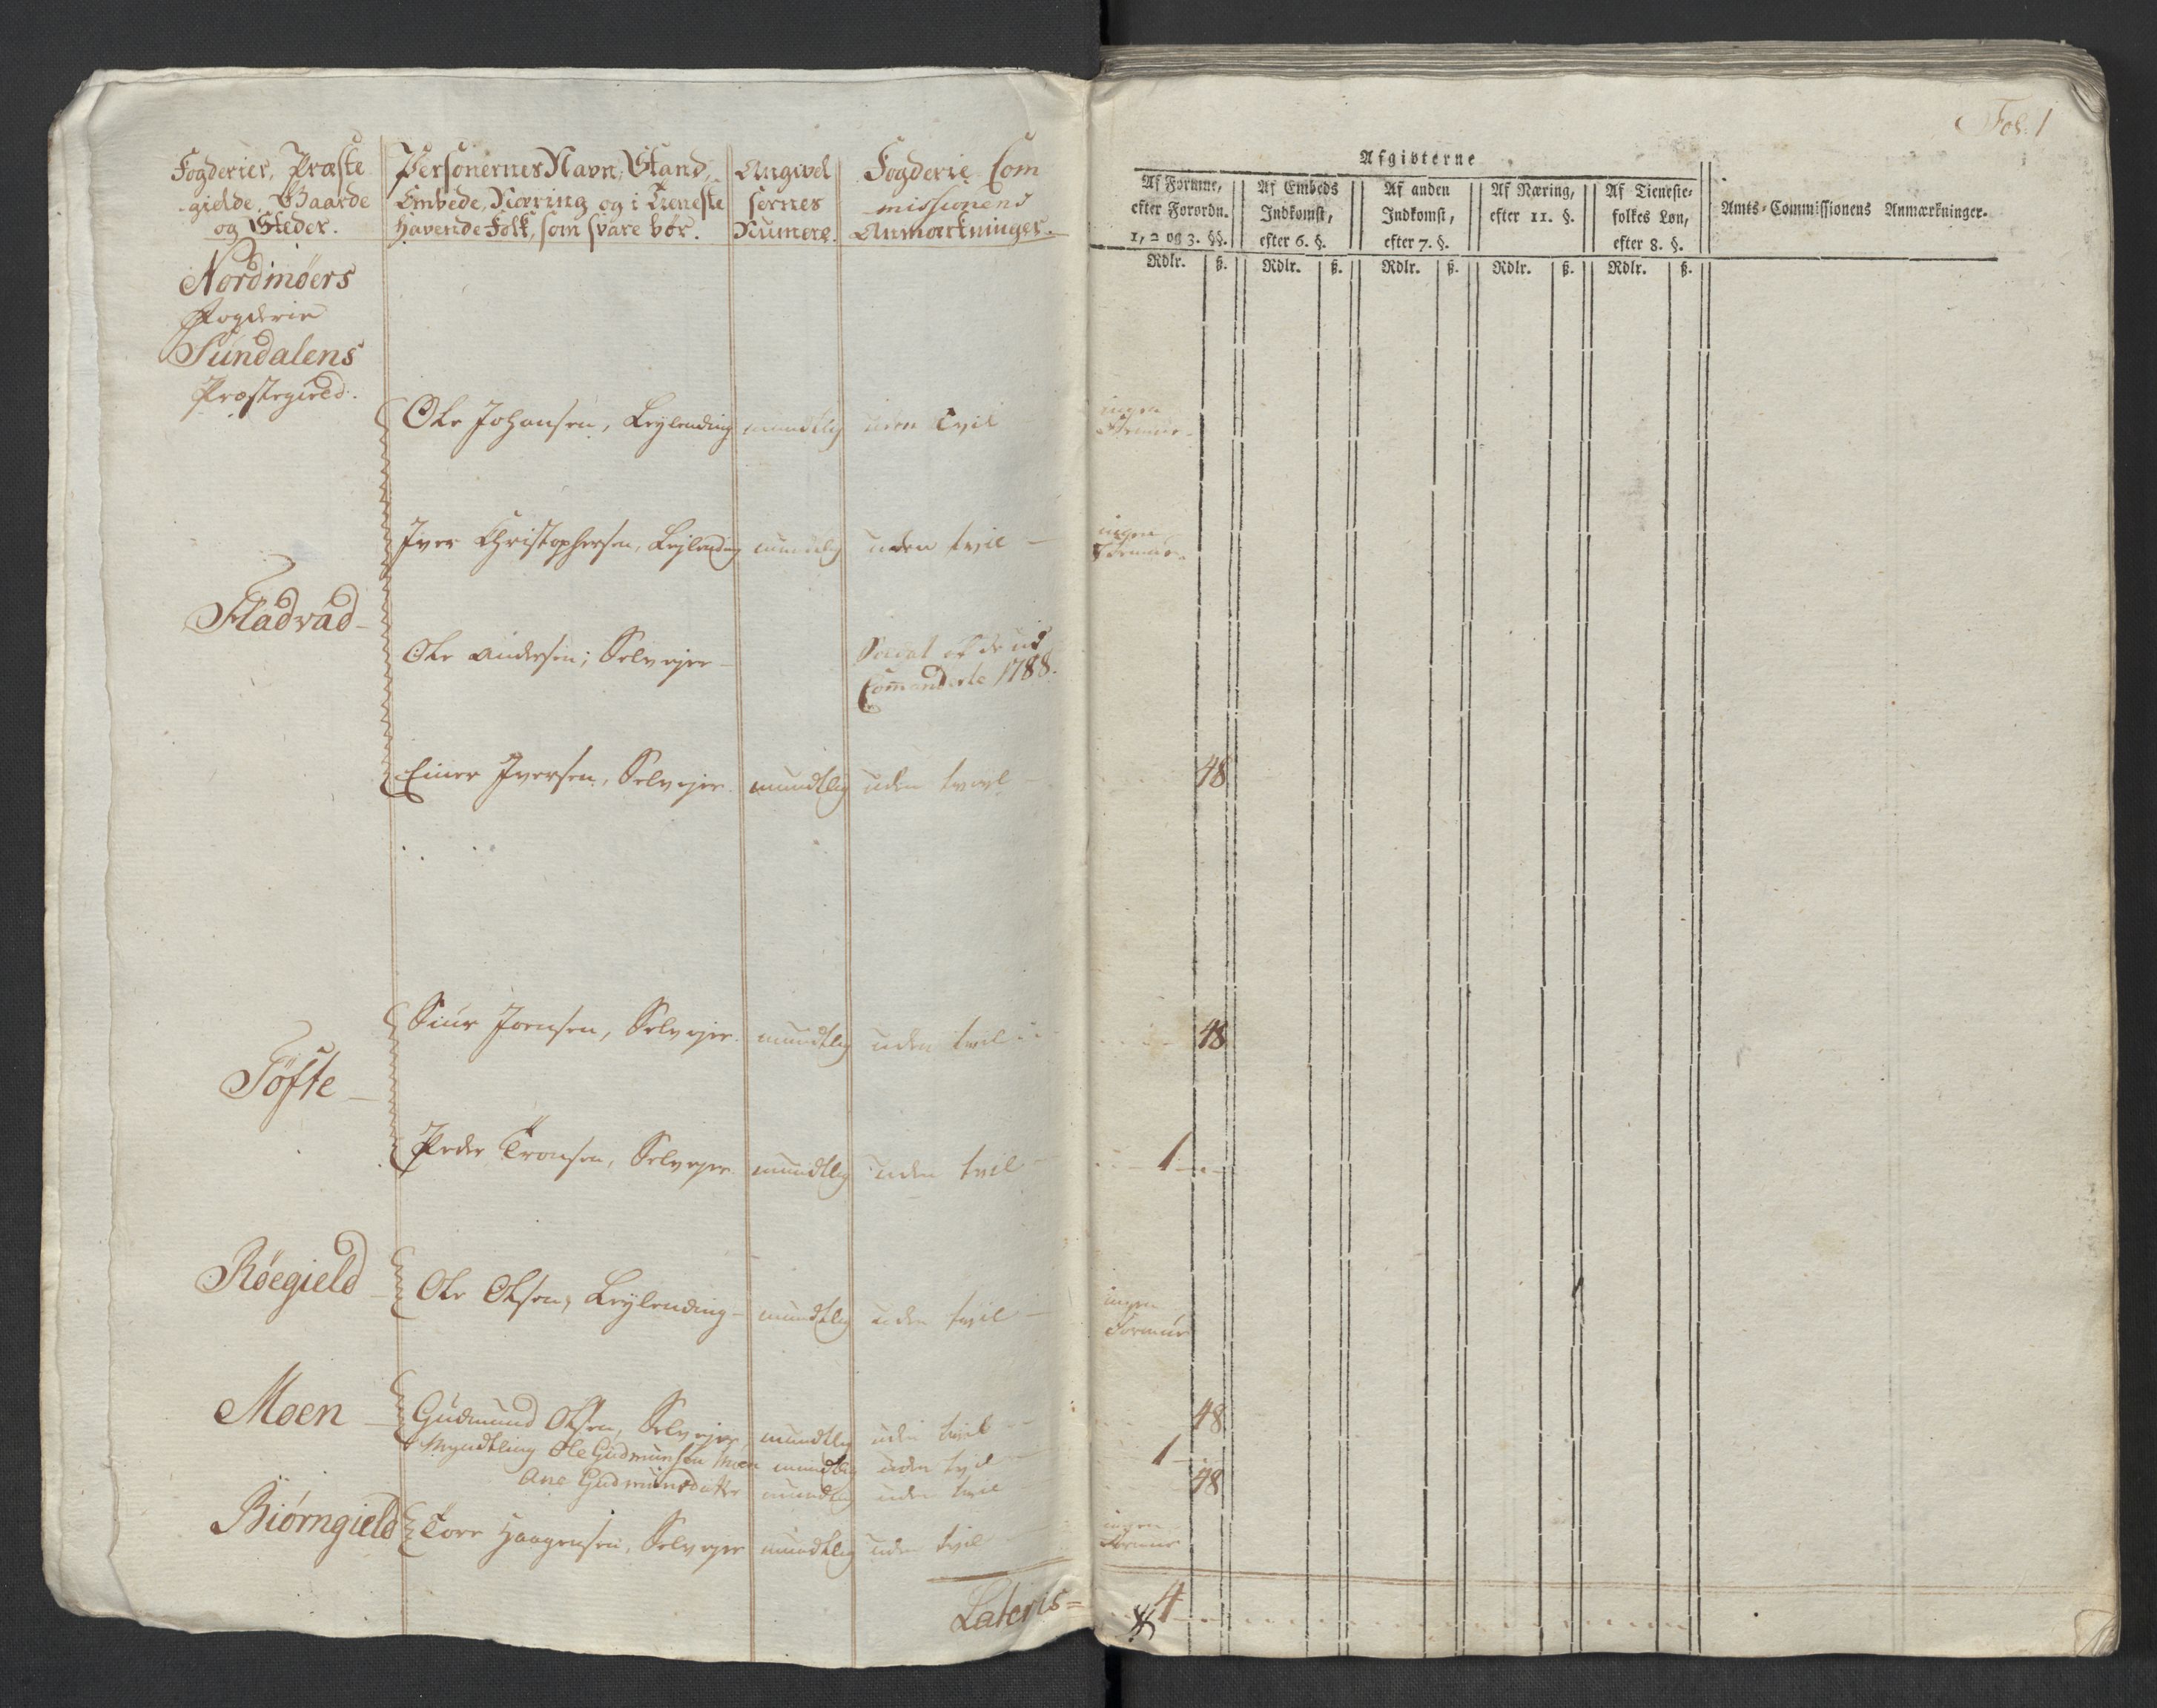 Fogderier, Præste
gielde, Gaarde
og Steder.
Personernes Navn, Stand,
Embede, Næring og i Tieneste
havende Folk, som svare bør.
Angivel
sernes
Numere.
Fogderie Com
missionens
Anmærkninger.
Nordmøers
Fogderie
Sundalens
Præstegield.
Ole Johansen, Leylending mundtlig uden tvil
Iver Christophersen, Leylending mundtlig uden tvil —
Fladvad —
Ole Andersen, Selvejer —
Soldat af de ud
Comanderte 1788.
Einer Iversen, Selvejer. mundtlig uden tvivl —
Siur Joensen, Selvejer. mundtlig uden tvil
Töfte —
Peder Tronsen, Selvejer. mundtlig uden tvil
Røegield — Ole Olsen, Leylending — mundtlig uden tvil —
Moen — Gudmund Olsen, Selvejer mundtlig uden tvil
Myndtling Ole Gudmunsen Moen mundtlig uden tvil
Ane Gudmundsdatter mundtlig uden tvil
Biørngield Tore Haagensen, Selvejer mundtlig uden tvil
Lateris =
Fol: 1
Afgivterne
Af Formue,
efter Forordn.
1, 2 og 3. §§.
Af Embeds
Indkomst,
efter 6. §.
Af anden
Indkomst,
efter 7. §.
Af Næring,
efter 11. §.
Af Tieneste-
folkes Løn,
efter 8. §.
Amts-Commissionens Anmærkninger.
Rdlr. ß. Rdlr. ß. Rdlr. ß. Rdlr. ß. Rdlr. ß.
ingen
Formue
ingen
Formue
48
48
1
ingen
Formue
48
1
48
ingen
Formue
4